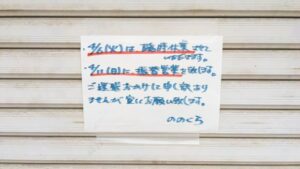 ・8/6(火)は臨時休業させて
いただきます。
・8/11(日)に振替営業を致します。
ご迷惑おかけして申し訳あり
ませんが宜しくお願い致します。
ののくろ